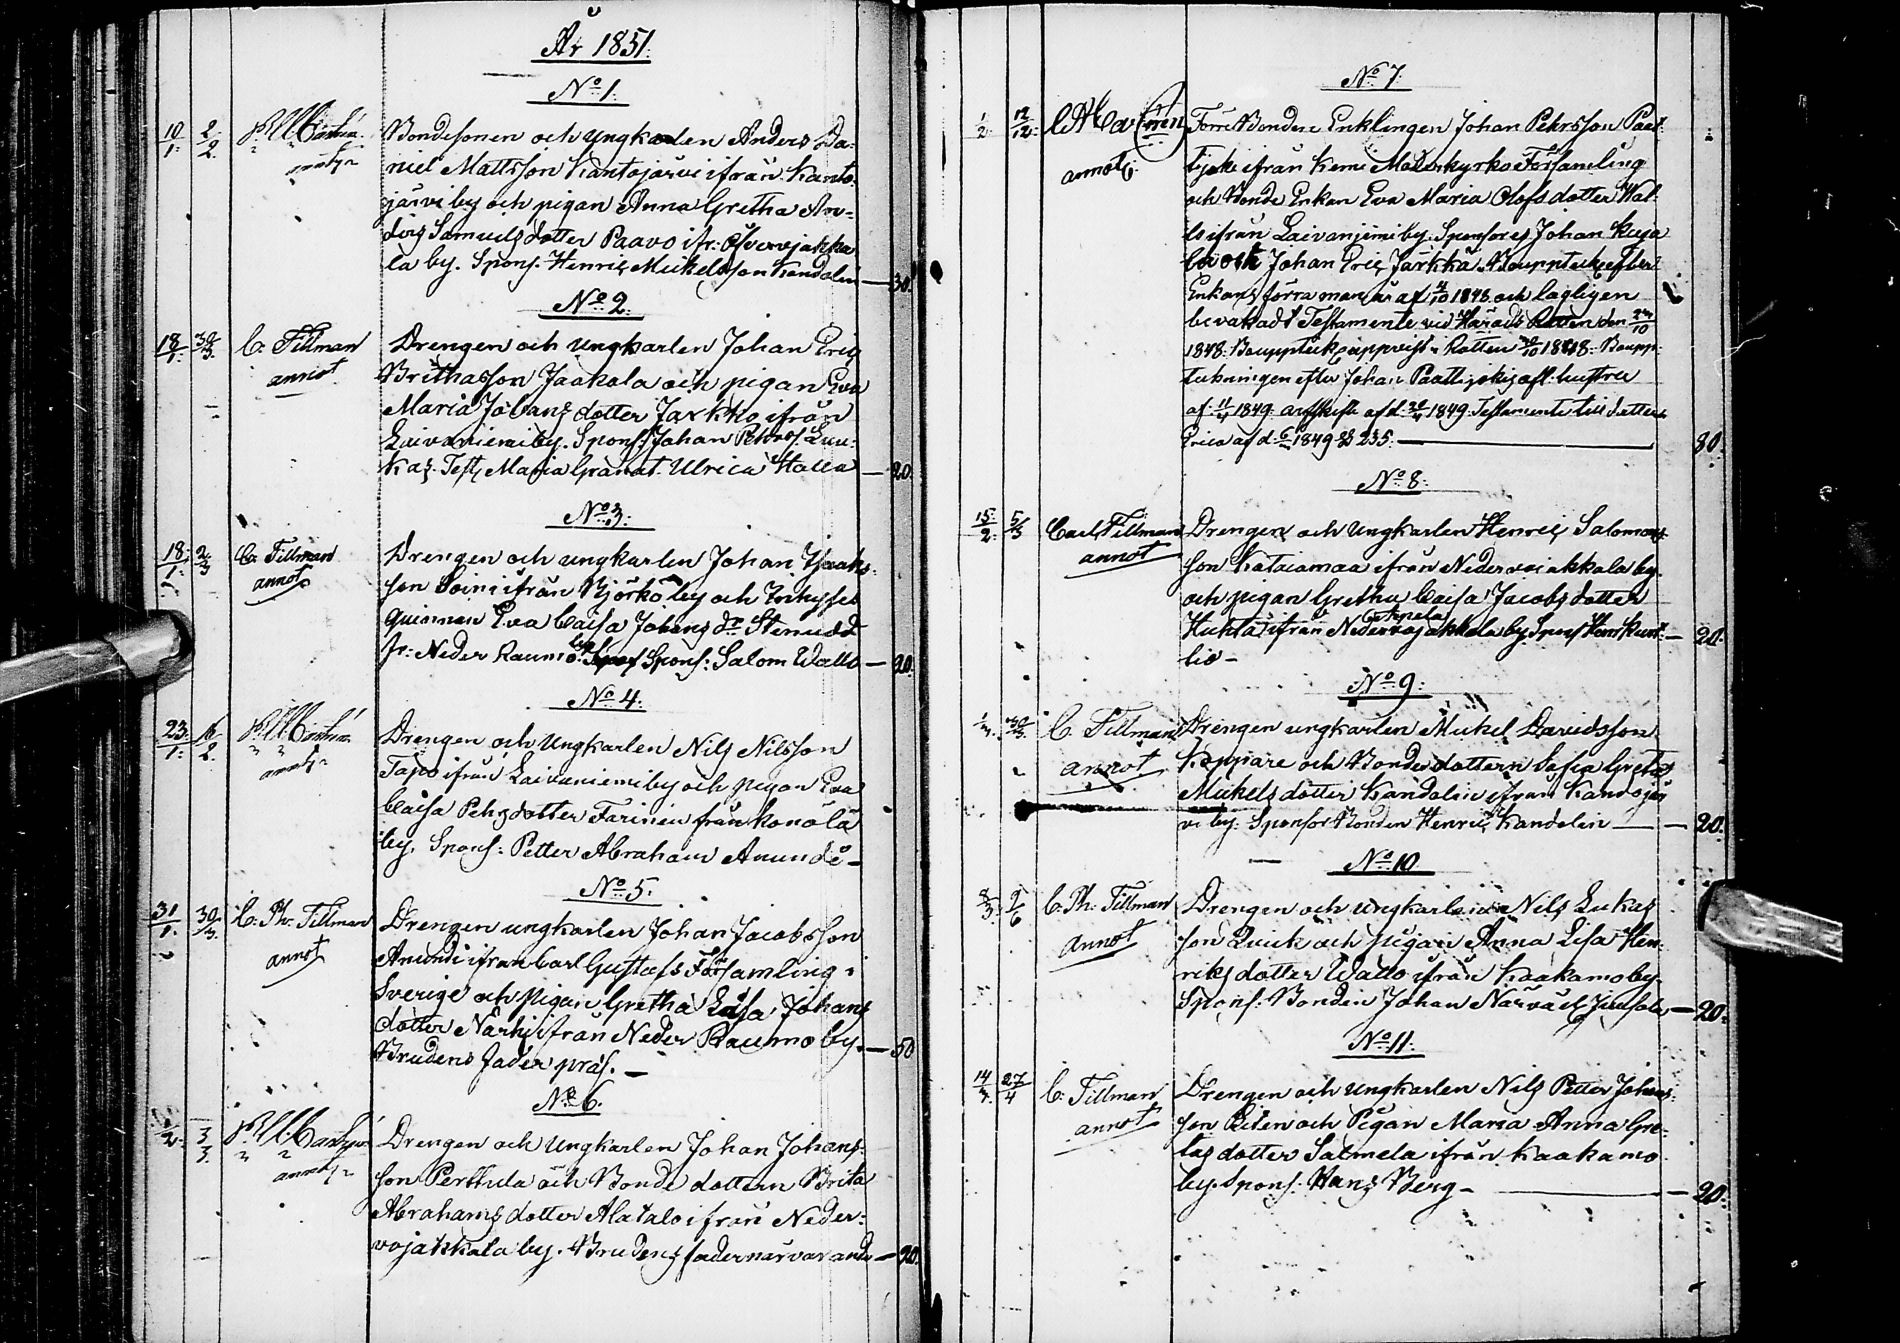 År 1851.
No 1.
10/1. 2/2
Bondesonen och Ungkarlen Anders Da-
niel Mattsson Kantojärvi ifrån Kanto-
järvi by och pigan Anna Gretha An-
ders Samuels dotter Paavo ifr: Öfvervojakka
la by. Spons. Henric Mickelsson Kandolin — 30.
No 2.
18/1. 30/3. C. Tillman
annot
Drengen och Ungkarlen Johan Eric
Brithasson Jaakola och pigan Eva
Maria Johans dotter Jarkko ifrån
Laivaniemi by. Spons: Johan Pehrss. Luu-
kas. Test, Maria Granat. Ulrica Halla — 20.
No 3.
18/1. 2/3 C. Tillman
annot
Drengen och ungkarlen Johan Isaaks-
son Soini ifrån Björkö by och Inhyses
quinnan Eva Caisa Johans dr Stenudd
fr: Neder Raumo by Spons: Salom Wallo — 20.
No 4.
23/1. /2.
annot
Drengen och Ungkarlen Nils Nilsson
Tapo ifrån Laivaniemi by och pigan Eva
Caisa Pehrsdotter Farinen från Konola
by. Spons: Petter Abraham Anundi —
No 5.
31/1. 30/3. C. Ph. Tillman
annot
Drengen ungkarlen Johan Jacobsson
Anundi ifrån Carl Gustafs Församling i
Sverige och pigan Gretha Lisa Johans
dotter Närhi ifrån Neder Raumo by. — 50
Brudens fader præs. —
No 6.
/2. 3/3.
annot
Drengen och Ungkarlen Johan Johans-
son Perttula och Bonde dottern Brita
Abrahams dotter Alatalo ifrån Neder-
vojakkala by. Brudens fader närvarande — 20.
No 7.
1/2. 12/12.
annot
Förre Bonden Enklingen Johan Pehrsson Paat-
tijoki ifrån Kemi Moderkyrko Församling
och Bonde Enkan Eva Maria Olofs dotter Wal-
lo ifrån Laivaniemi by. Sponsores Johan Kuja
la och Johan Eric Jarkkä. Bouppteckn: efter
Enkans förra man är af 4/10 1848 och lagligen
bevakadt Testamente vid Härads Rätten den /10
1848. Bouppteckn: uppvist i Rätten /10 1848. Boupp-
teckningen efter Johan Paattijokis afl. hustru
af 11/4 1849. arfskifte af d. 1849. Testamente till dottern
Erica af d. 6/ 1849. § 235. — 80.
No 8.
15/2. 5/3 Carl Tillman
annot
Drengen och Ungkarlen Henric Salomons-
son Kataiamaa ifrån Nedervoiakkala by.
och pigan Gretha Caisa Jacobs dotter
Huhta ifrån Nedervojakkala by. Spons — 20.
No 9.
1/3. 30/3. C. Tillman
annot
Drengen ungkarlen Mickel Davidsson
och Bonde dottern Sofia Greta
Mickels dotter Kandolin ifrån Kandojär
vi by. Sponsor Bonden Henric Kandolin — 20.
No 10.
8/3. 2/6 C. Ph. Tillman
annot
Drengen och ungkarlen Nils Lukas
son Quick och pigan Anna Lisa Hen-
riks dotter Wallo ifrån Kaakamo by.
Spons. Bonden Johan — 20.
No 11.
14/3. 27/4 C. Tillman
annot
Drengen och Ungkarlen Nils Petter Johans-
son och Pigan Maria Anna Gre-
tas dotter Salmela ifrån Kaakamo
by. Spons: Hans Berg — 20.